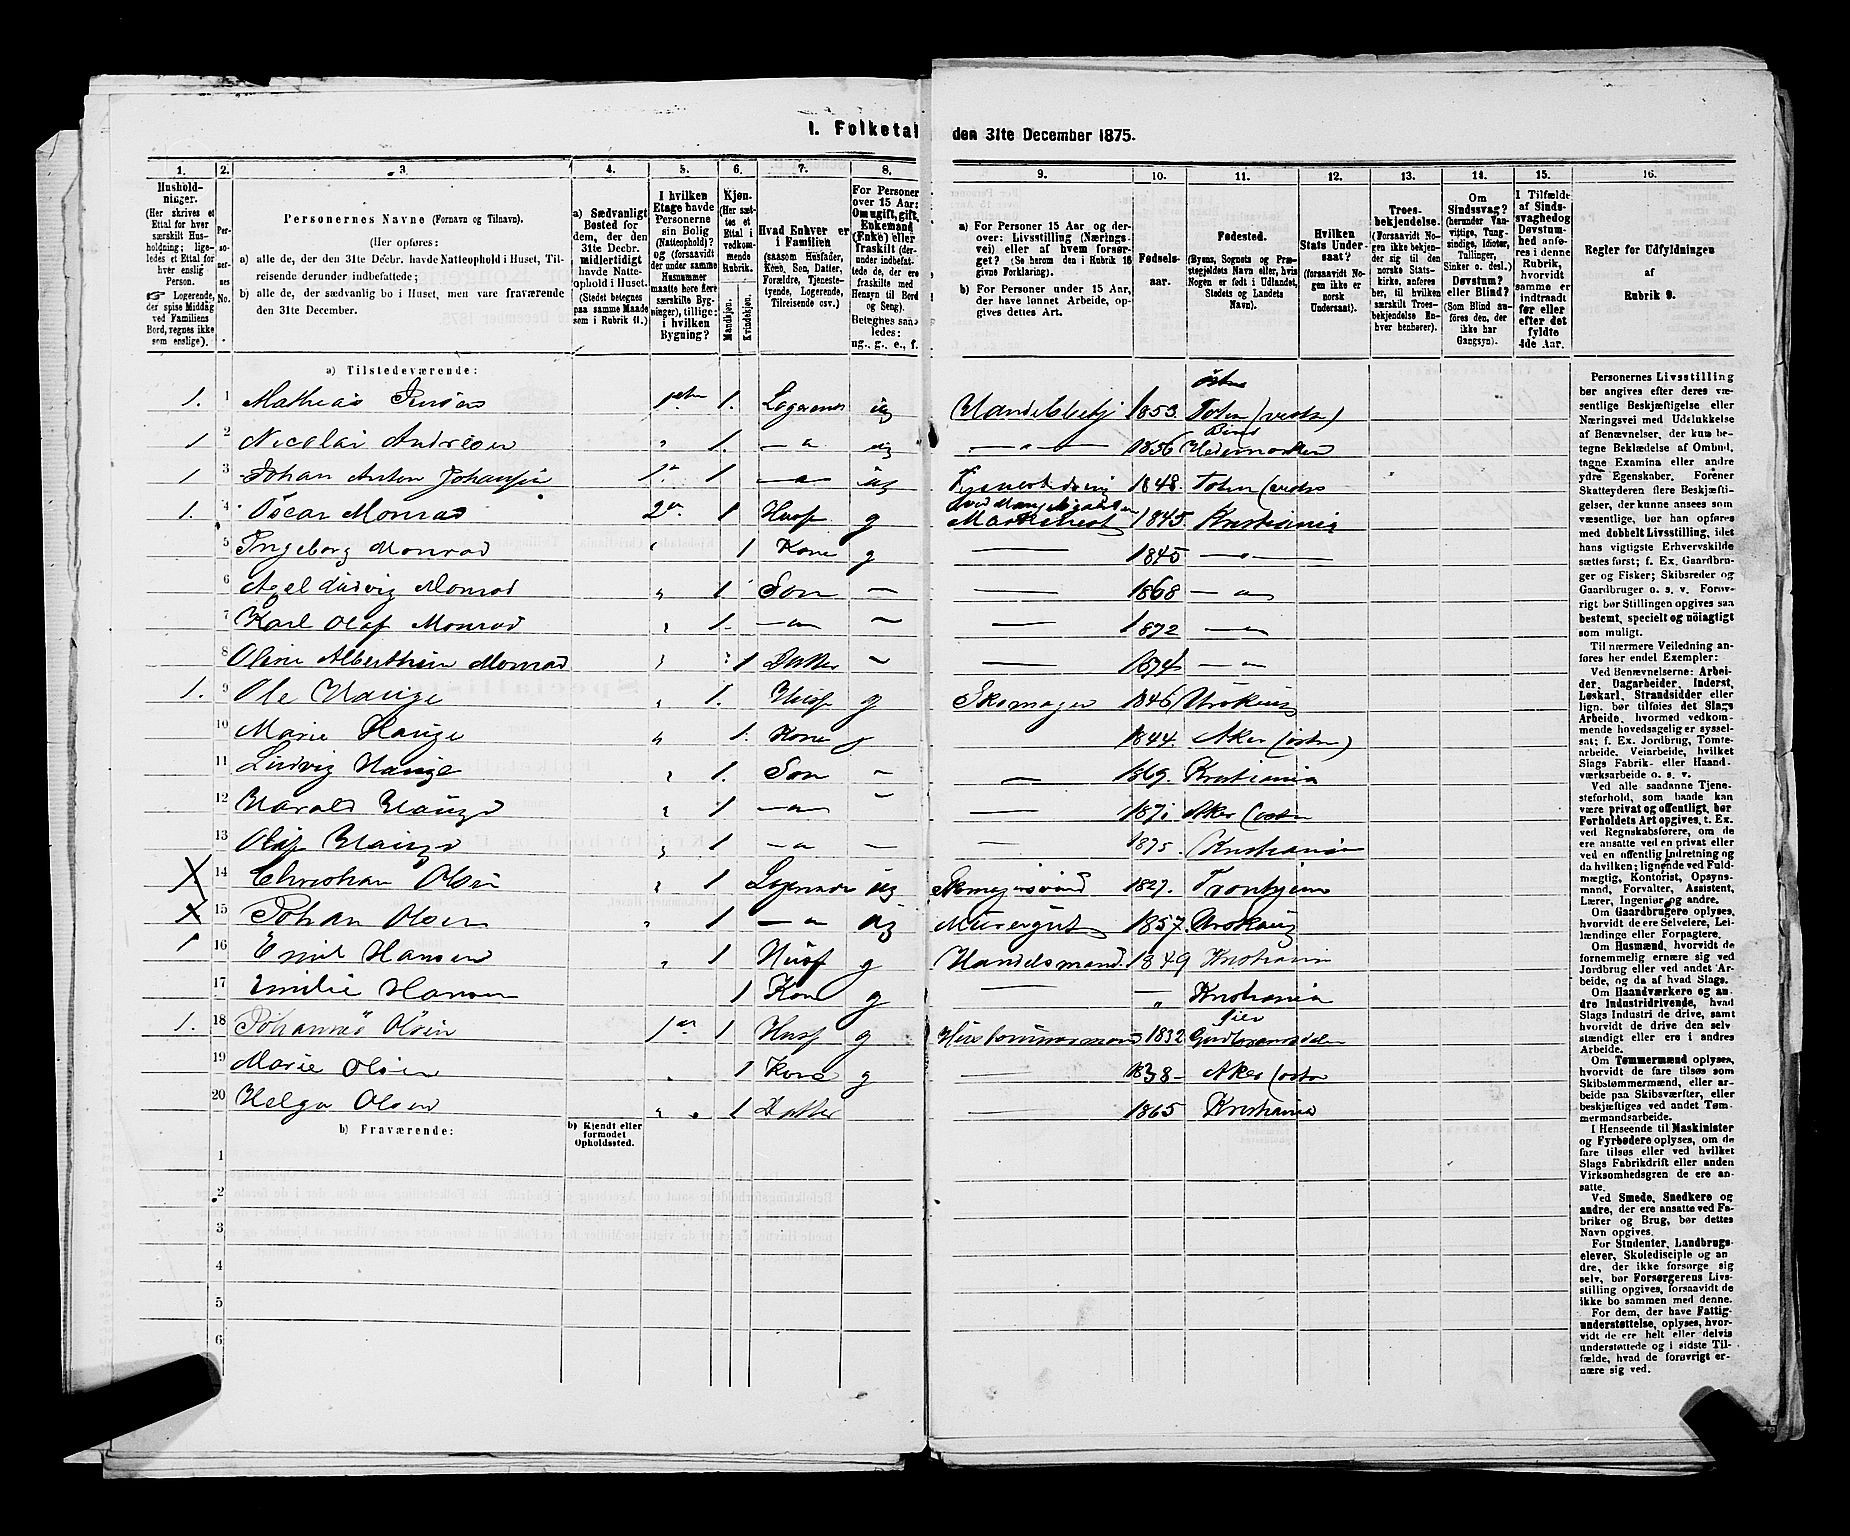 I. Folketal
den 31te December 1875.
1. 2. 3. 4. 5. 6. 7. 8. 9. 10. 11. 12. 13. 14. 15. 16.
Hushold-
ninger.
(Her skrives et
Ettal for hver
særskilt Hus-
holdning; lige-
ledes et Ettal for
hver enslig
Person.
☞ Logerende,
der spise Middag
ved Familiens
Bord, regnes ikke
som enslige).
Per-
so-
ner-
nes
No.
Personernes Navne (Fornavn og Tilnavn).
(Her opføres:
a) alle de, der den 31te Decbr. havde Natteophold i Huset, Til-
reisende derunder indbefattede;
b) alle de, der sædvanlig bo i Huset, men vare fraværende
den 31te December.
a) Sædvanligt
Bosted for
dem, der den
31te Decbr.
midlertidigt
havde Natte-
ophold i Huset.
(Stedet betegnes
paa samme Maade
som i Rubrik 11.)
I hvilken
Etage havde
Personerne
sin Bolig
(Natteophold)?
og (forsaavidt
der under samme
Husnummer
maatte høre flere
særskilte Byg-
ninger), tillige:
i hvilken
Bygning?
Kjøn.
(Her sæt-
tes et
Ettal i
vedkom-
mende
Rubrik.
Mandkjøn.
Kvindekjøn.
Hvad Enhver er
i Familien
(saasom Husfader,
Kone, Søn, Datter,
Forældre, Tjeneste-
tyende, Logerende,
Tilreisende osv.)
For Personer
over 15 Aar:
Om ugift, gift,
Enkemand
(Enke) eller
fraskilt (der-
under indbefat-
tede de, der ere
fraskilte med
Hensyn til Bord
og Seng).
Betegnes saa-
ledes:
ug., g., e., f.
a) For Personer 15 Aar og der-
over: Livsstilling (Nærings-
vei) eller af hvem forsør-
get? (Se herom den i Rubrik 16
givne Forklaring).
b) For Personer under 15 Aar,
der have lønnet Arbeide, op-
gives dettes Art.
Fødsels-
aar.
Fødested.
(Byens, Sognets og Præ-
stegjeldets Navn eller, hvis
Nogen er født i Udlandet,
Stedets og Landets
Navn).
Hvilken
Stats Under-
saat?
(forsaavidt No-
gen ikke er
norsk
Undersaat).
Troes-
bekjendelse.
(Forsaavidt No-
gen ikke bekjen-
der sig til den
norske Stats-
kirke, anføres
her, til hvilken
særskilt Troes-
bekjendelse En-
hver henhører).
Om
Sindssvag?
(herunder Van-
vittige, Tung-
sindige, Idioter,
Tullinger,
Sinker o. desl.)
Døvstum?
eller Blind?
(Som Blind an-
føres den, der
ikke har
Gangsyn).
I Tilfælde
af Sinds-
svaghed og
Døvstum-
hed anfø-
res i denne
Rubrik,
hvorvidt
samme er
indtraadt
før eller
efter det
fyldte
4de Aar.
Regler for Udfyldningen
af
Rubrik 9.
a) Tilstedeværende:
1. 1 Mathias Jensen 1ste 1. Logerende ug Handelsbetj 1853. Østre Toten (vestre)
1 2 Nicolai Andresen " 1. — " ug — " — 1856 Hedemarken
1 3 Johan Anton Johansen 1" 1 — " ug 1848. Toten (vestre
1. 4 Oscar Monrad 2den 1 Husf g Maskinist 1845. Kristiania
5 Ingeborg Monrad " 1 Kone g — 1845 — " —
6 Axel Ludvig Monrad " 1. Søn — — 1868 — "
7 Karl Olaf Monrad " 1. — " — — 1872 — "
8 Oline Alberthine Monrad " 1 Datter — — 1874 — "
1. 9 Ole Hauge " 1. Husf g Skomager 1846 Urskoug
10 Marie Hauge " 1. Kone g 1844. Aker (østre)
11 Ludvig Hauge " 1. Søn — — 1869. Kristiania
12 Harald Hauge " 1 — " — — 1871 Aker (østre
13 Olaf Hauge " 1 — " — — 1875. Kristiania
X 14 Christian Olsen " 1 Logerende ug Skomagersvend 1827. Tronhjem
X 15 Johan Olsen " 1 — " ug Murergut 1857. Urskoug
1 16 Emil Hansen " 1 Husf g Handelsmand. 1849 Kristiania
17 Emilie Hansen 1 Kone g — " Kristiania
1. 18 Johannes Olsen 1ste 1 Husf g Hustømmermand 1832 Øier Gudbrandsdalen
19 Marie Olsen " 1 Kone g — 1838 - Aker (østre
20 Helga Olsen " 1 Datter — 1865 Kristiania
b) Fraværende:
b) Kjendt eller
formodet
Opholdssted.
1
2
3
4
5
6
Personernes Livsstilling
bør angives efter deres væ-
sentlige Beskjæftigelse eller
Næringsvei med Udelukkelse
af Benævnelser, der kun be-
tegne Beklædelse af Ombud,
tagne Examina eller andre
ydre Egenskaber. Forener
Skatteyderen flere Beskjæfti-
gelser, der kunne ansees som
væsentlige, bør han opføres
med dobbelt Livsstilling, idet
hans vigtigste Erhvervskilde
sættes først; f. Ex. Gaardbru-
ger og Fisker; Skibsreder og
Gaardbruger o. s. v. Forøv-
rigt bør Stillingen opgives saa
bestemt, specielt og nöiagtigt
som muligt.
Til nærmere Veiledning an-
føres her endel Exempler:
Ved Benævnelserne: Arbei-
der, Dagarbeider, Inderst,
Løskarl, Strandsidder eller
lign. bør tilføies det Slags
Arbeide, hvormed vedkom-
mende hovedsagelig er syssel-
sat; f. Ex. Jordbrug, Tomte-
arbeide, Veiarbeide, hvilket
Slags Fabrik- eller Haand-
værksarbeide o. s. v.
Ved alle saadanne Tjene-
steforhold, som baade kan
være privat og offentligt, bør
Forholdets Art opgives, t. Ex.
ved Regnskabsførere, om de
ere ansatte ved en privat eller
ved en offentlig Indretning og
da hvilken; lignende ved Fuld-
mægtig, Kontorist, Opsyns-
mand, Forvalter, Assistent,
Lærer, Ingeniør og andre.
Om Gaardbrugere oplyses,
hvorvidt de ere Selveiere, Lei-
lændinge eller Forpagtere.
Om Husmænd, hvorvidt de
fornemmelig ernære sig ved
Jordbrug eller ved andet Ar-
beide, og da af hvad Slags.
Om Haandværkere og an-
dre Industridrivende, hvad
Slags Industri de drive, samt
hvorvidt de drive den selv-
stændigt eller ere i andres
Arbeide.
Om Tømmermænd oplyses,
hvorvidt de fare tilsøs som
Skibstømmermænd, eller ar-
beide paa Skibsværfter, eller
beskjæftiges ved andet Tøm-
mermandsarbeide.
I Henseende til Maskinister
og Fyrbødere oplyses, om de
fare tilsøs eller ved hvilket
Slags Fabrikdrift eller anden
Virksomhedsgren de ere an-
satte.
Ved Smede, Snedkere og
andre, der ere ansatte ved Fa-
briker og Brug, bør dettes
Navn opgives.
For Studenter, Landbrugs-
elever, Skoledisciple og an-
dre, der ikke forsørge sig
selv, bør Forsørgerens Livs-
stilling opgives, forsaavidt de
ikke bo sammen med denne.
For dem, der have Fattig-
understøttelse, oplyses, hvor-
vidt de ere helt eller delvis
understøttede og i sidste Til-
fælde, hvad de forøvrigt er-
nære sig ved.